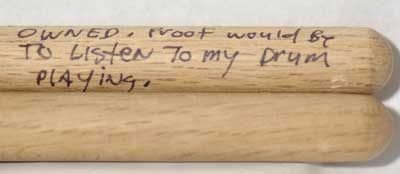 OWNED. Proof would By
To Listen To my Drum
PLAYING.